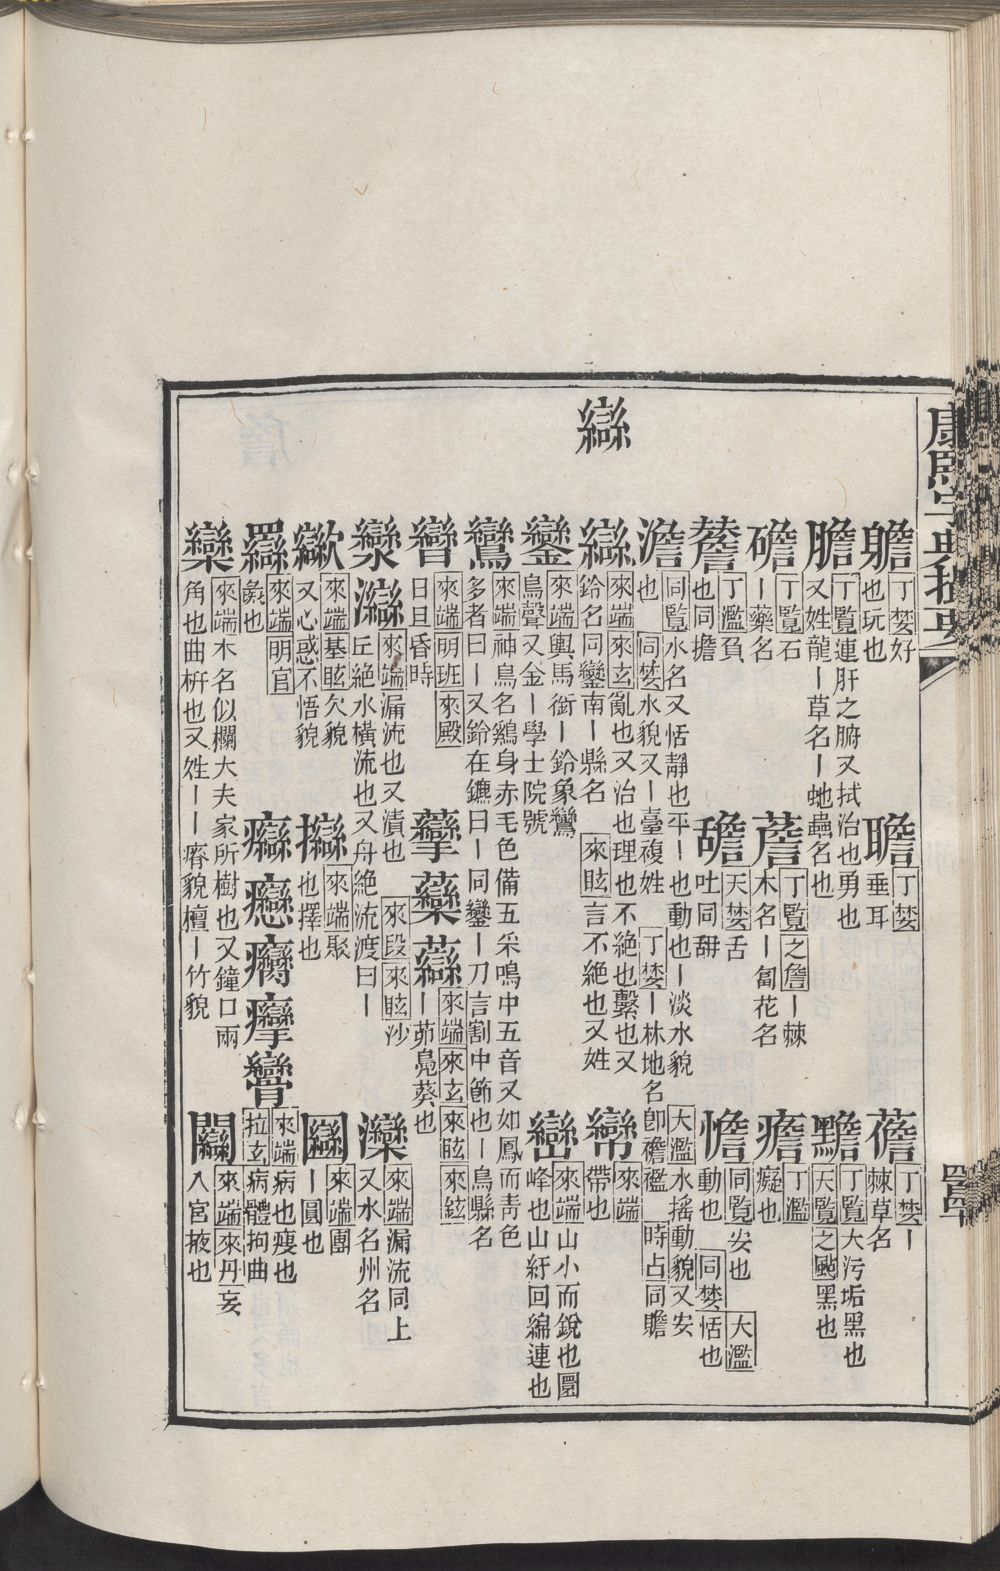 康熙字典撮要
䌓
軃 丁婪好
也玩也
聸 丁婪
垂耳
薝 丁婪丨
棘草名
膽 丁覽連肝之腑又拭治也勇也
又姓龍丨草名丨虵蟲名也
黵 丁覽大污垢黑也
大覽之颭黑也
礛 丁覽石
丨藥名
薝 丁覽之詹丨棘
木名丨蔔花名
癚 丁濫
癡也
丁濫負
也同擔
舚 天婪舌
吐同䑙
憺 同覽安也 大濫
動也 同婪恬也
澹 同覽水名又恬靜也平丨也動也丨淡水貌 大濫水搖動貌又安
也 同婪水貌又丨臺複姓 丁婪丨林地名卽襜襤 時占同贍
䜌 來端來玄亂也又治也理也不絶也繫也又
鈴名同鑾南丨縣名 來眩言不絶也又姓
來端
帶也
鑾 來端輿馬銜丨鈴象鸞
鳥聲又金丨學士院號
巒 來端山小而銳也圜
峰也山紆回綿連也
鸞 來端神鳥名鷄身赤毛色備五采鳴中五音又如鳳而靑色
多者曰丨又鈴在鑣曰丨同鑾丨刀言割中節也丨鳥縣名
來端明班來殿
日且昏時
來端來玄來眩來鉉
丨茆鳧葵也
灓 灤 來端漏流也又漬也 來段來眩沙
丘絶水橫流也又舟絶流渡曰丨
灤 來端漏流同上
又水名州名
來端基眩欠貌
又心惑不悟貌
來端聚
也擇也
圞 來端團
丨圓也
來端明官
彘也
來端病也瘦也
拉玄病體拘曲
欒 來端木名似欄大夫家所樹也又鐘口兩
角也曲枅也又姓丨丨瘠貌檀丨竹貌
來端來丹妄
入宮掖也